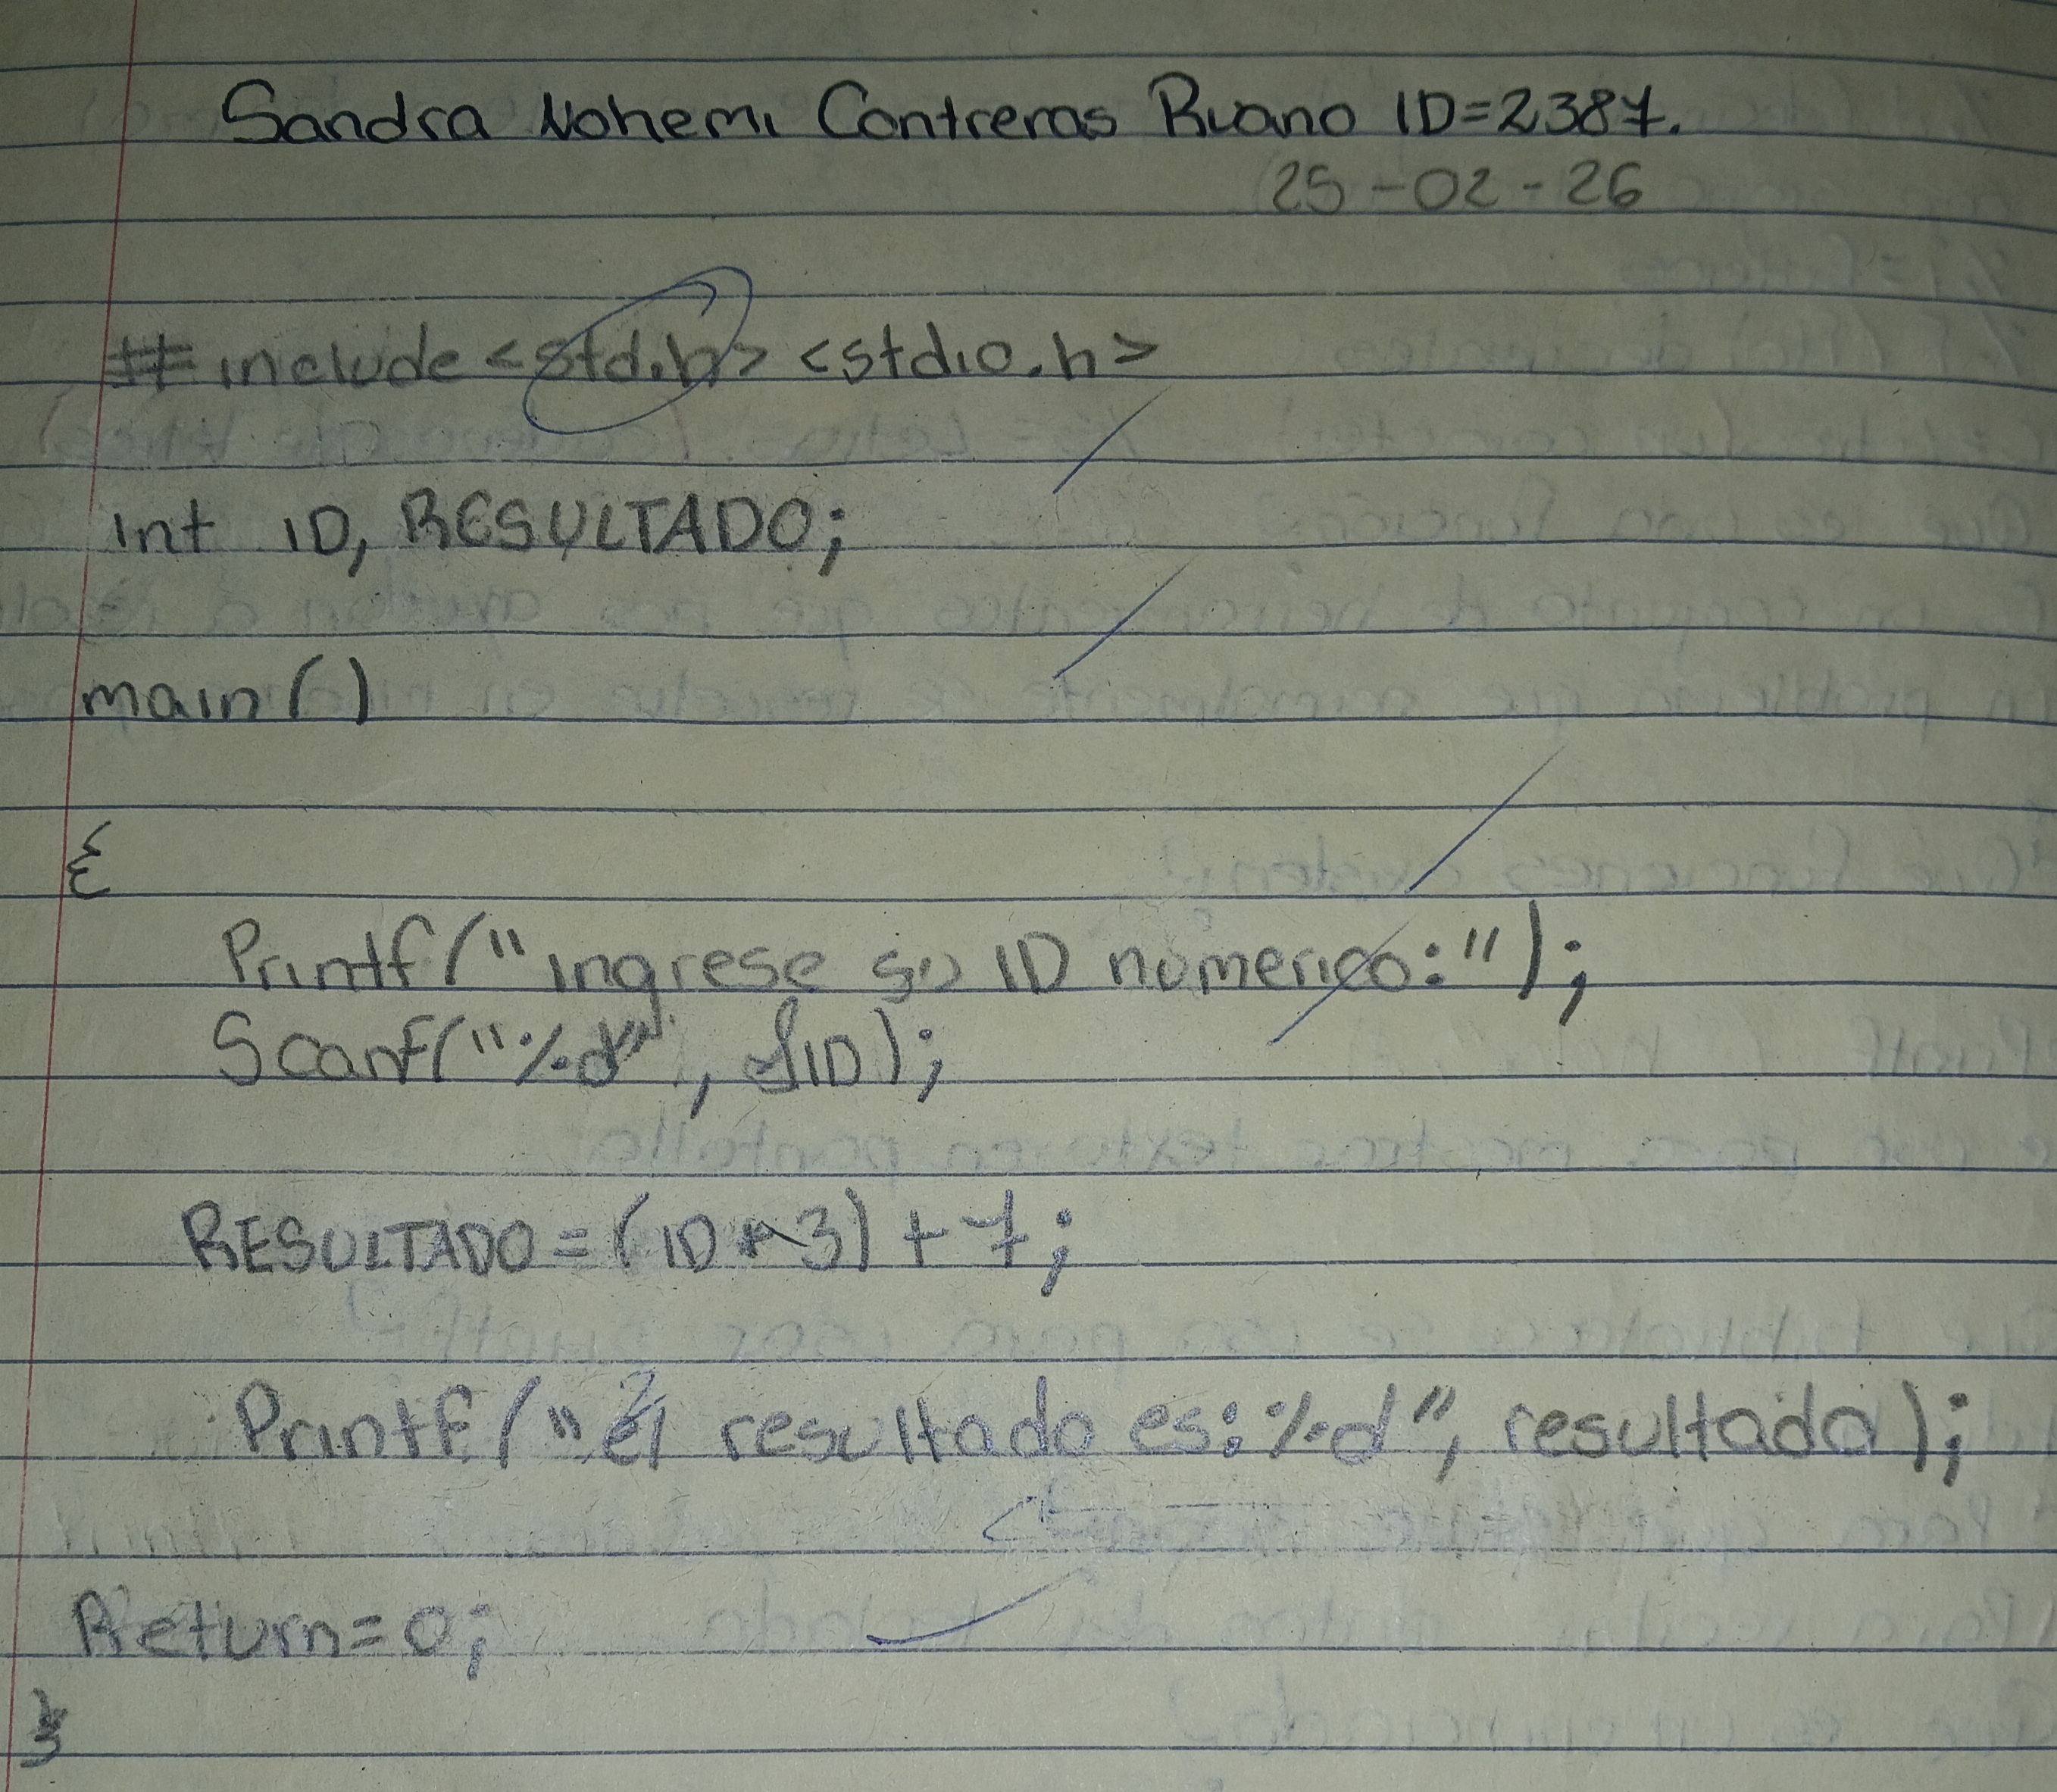 Sandra Nohemi Contreras Ruano ID=2387.
25-02-26
#include <std.h> <stdio.h>
int ID, RESULTADO;
main()
{
Printf("ingrese su ID numerico:");
Scanf("%d", &ID);
RESULTADO=(ID*3)+7;
Printf("el resultado es:%d", resultado);
Return=0;
}